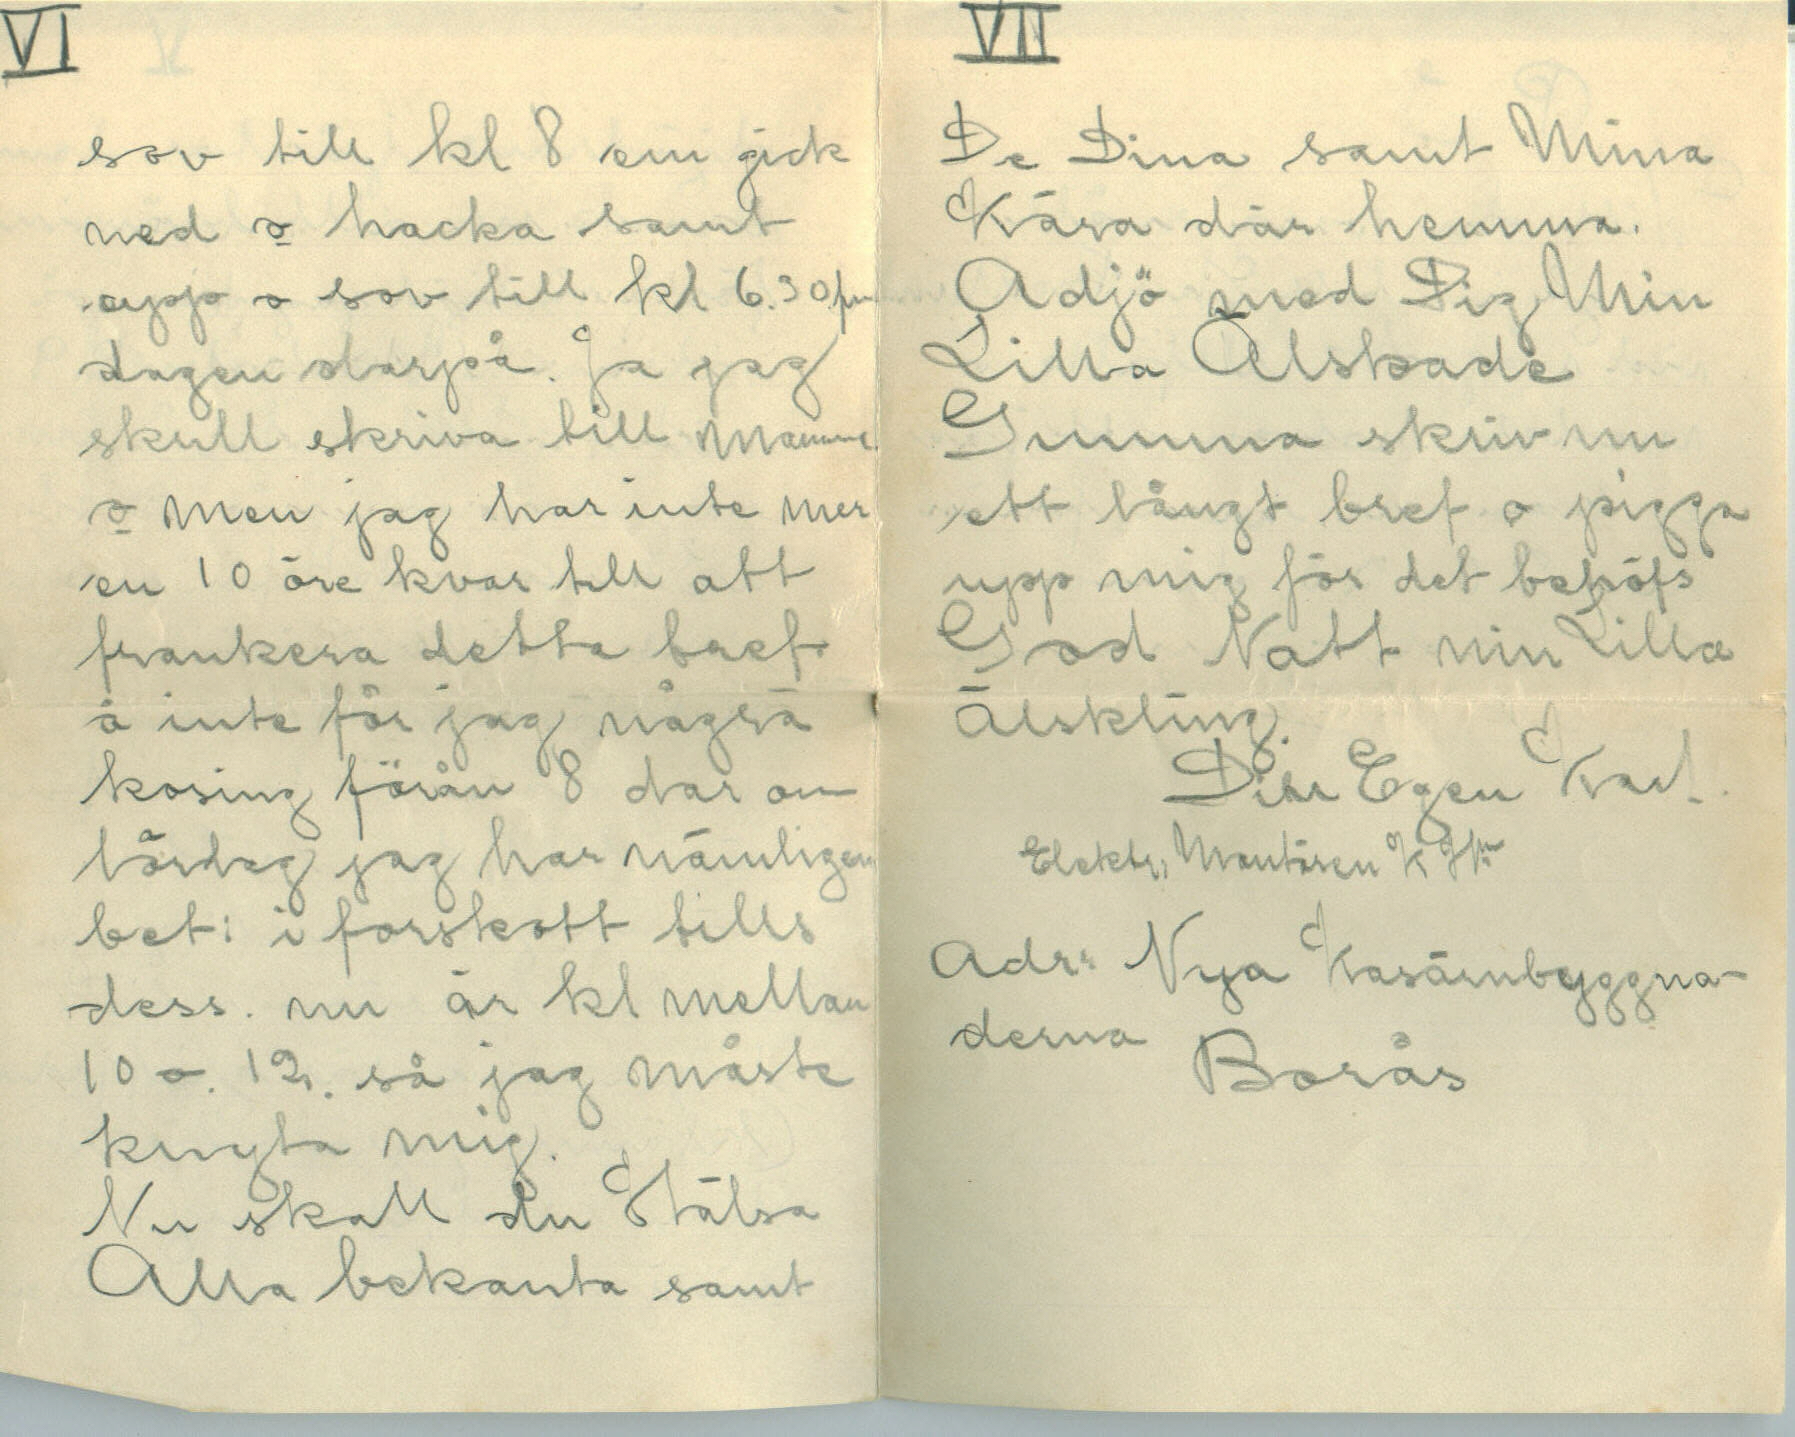 VI
sov till kl 8 em gick
ned o hacka samt
upp o sov till kl 6.30 fm
dagen darpå. Ja jag
skull skriva till Mamma
o men jag har inte mer
en 10 öre kvar till att
frankera detta bref
å inte får jag några
kosing förän 8 dar om
lördag jag har nämligen
bet: i forskott tills
dess. nu är kl mellan
10 o. 12. så jag måste
knyta mig.
Nu skall du Hälsa
Alla bekanta samt
VII
De Dina samt Mina
Kära där hemma.
Adjö med Dig Min
Lilla Älskade
Gumma skriv nu
ett långt bref o pigga
upp mig för det behöfs
God Natt min Lilla
Älskling.
Din Egen Karl.
Elektr. Montören K
Adr: Nya Kasärnbyggna-
derna Borås